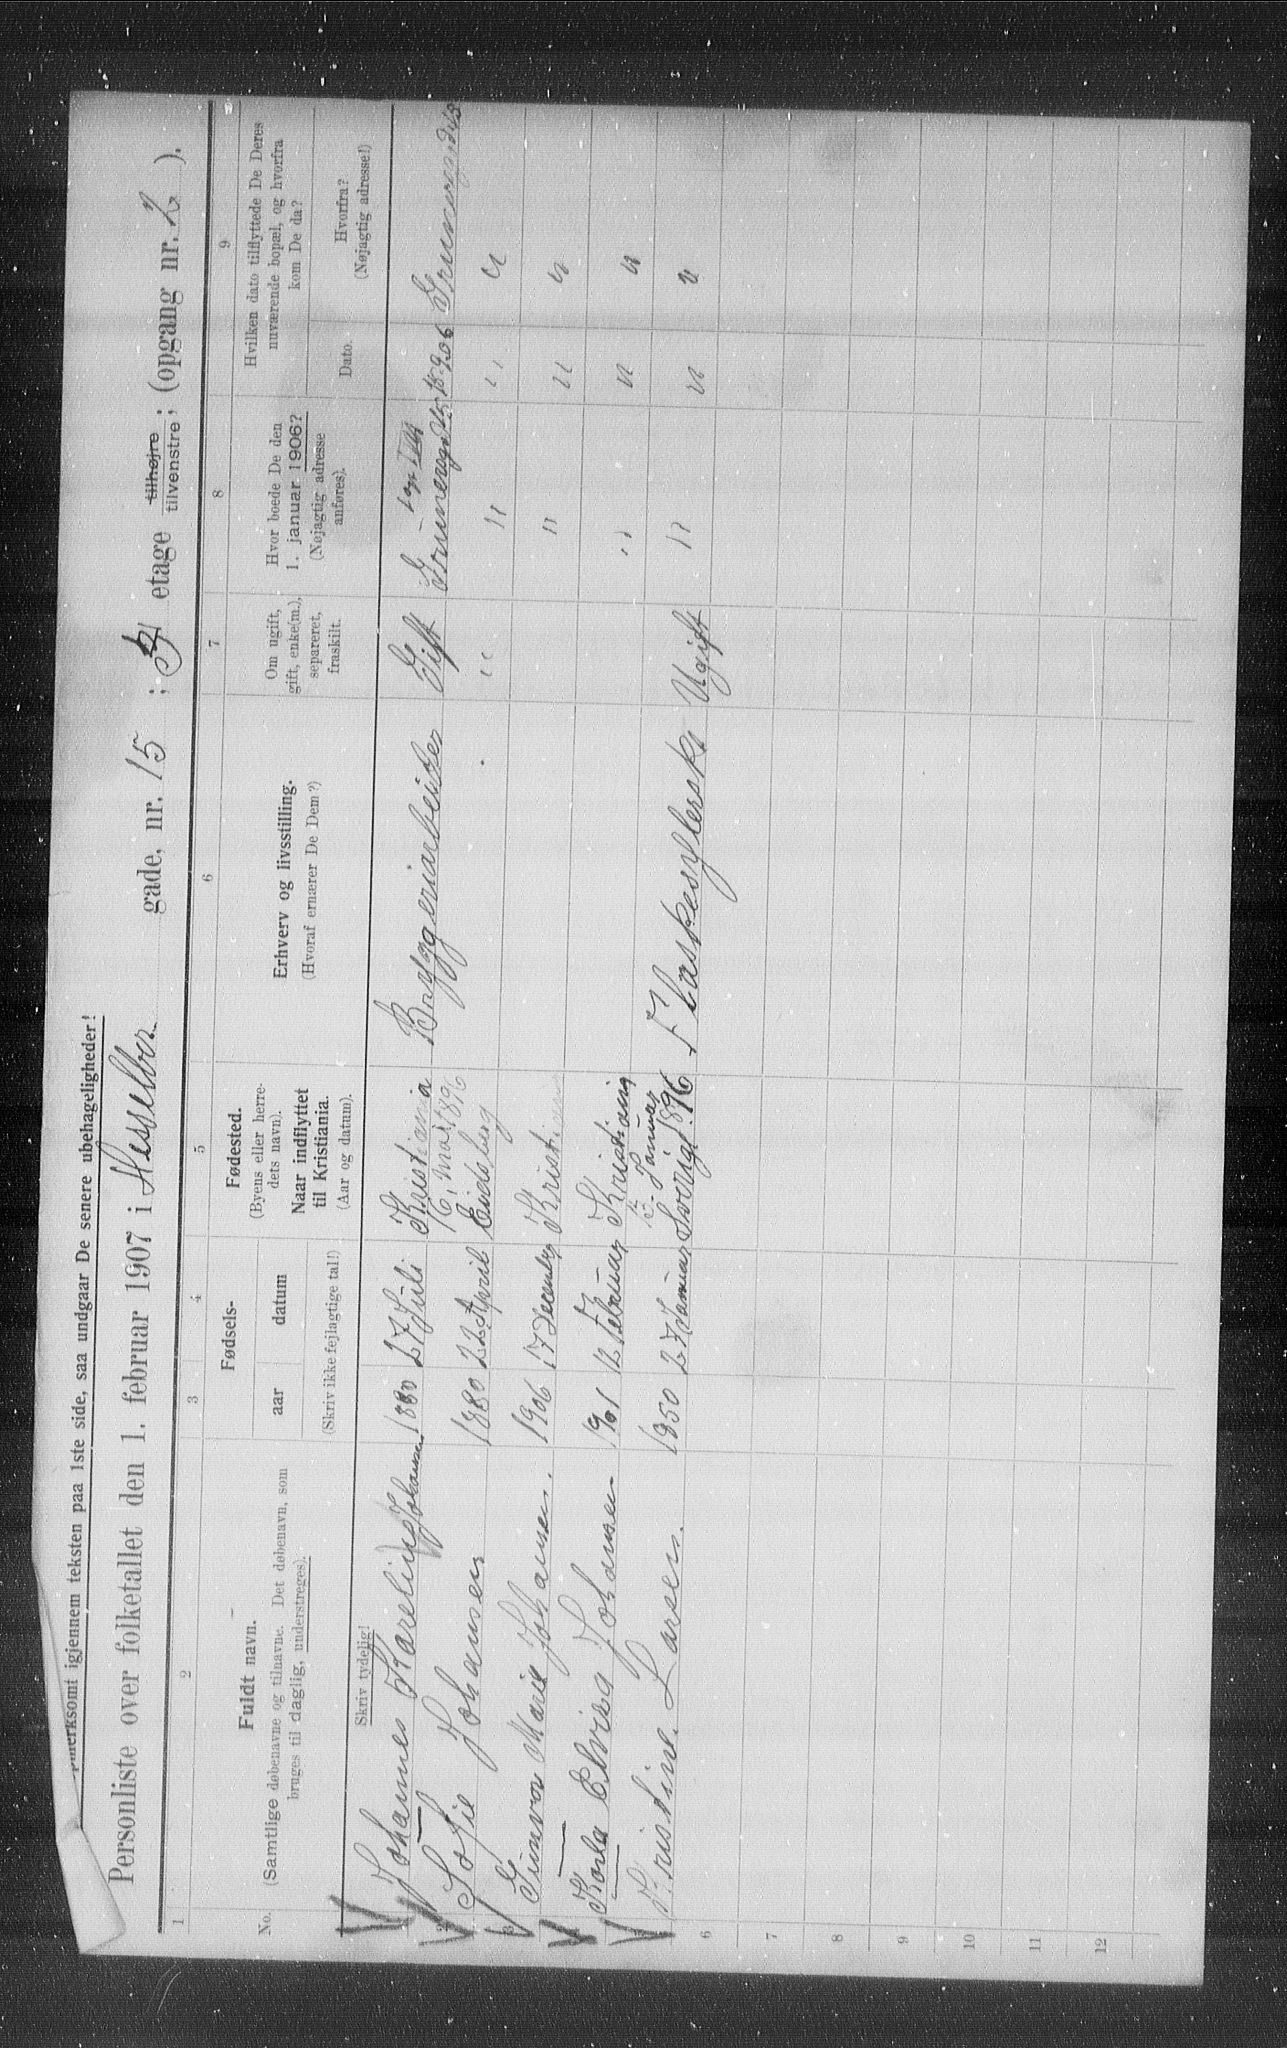 mærksomt igjennem teksten paa 1ste side, saa undgaar De senere ubehageligheder!
Personliste over folketallet den 1. februar 1907 i Hesselber gade, nr. 15 ; etage tilhøjre tilvenstre; (opgang nr. 2 ).
1 2 3 4 5 6 7 8 9
No.
Fuldt navn.
(Samtlige døbenavne og tilnavne. Det døbenavn, som
bruges til daglig, understreges).
Skriv tydelig!
Fødsels-
aar datum
(Skriv ikke fejlagtige tal!)
Fødested.
(Byens eller herre-
dets navn).
Naar indflyttet
til Kristiania.
(Aar og datum).
Erhverv og livsstilling.
(Hvoraf ernærer De Dem?)
Om ugift,
gift, enke(m.),
separeret,
fraskilt.
Hvor boede De den
1. januar 1906?
(Nøjagtig adresse
anføres).
Hvilken dato tilflyttede De Deres
nuværende bopæl, og hvorfra
kom De da?
Dato.
Hvorfra?
(Nøjagtig adresse!)
Johannes Karelius Johansen 1880 27 Juli Kristiania Bryggeriarbeider Gift
2 Sofie Johansen 1880 22 April 6 Mai 1896 Eidsberg " " " "
3 Gunvor Marie Johansen. 1906 17 December Kristiania " " "
Karla Elvisa Johansen 1901 12 Februar Kristiania " " "
Kristine Larsen. 1850 27 Januar Sverige Januar 1896 Flaskeskyllerske Ugift " " "
6
7
8
9
10
11
12